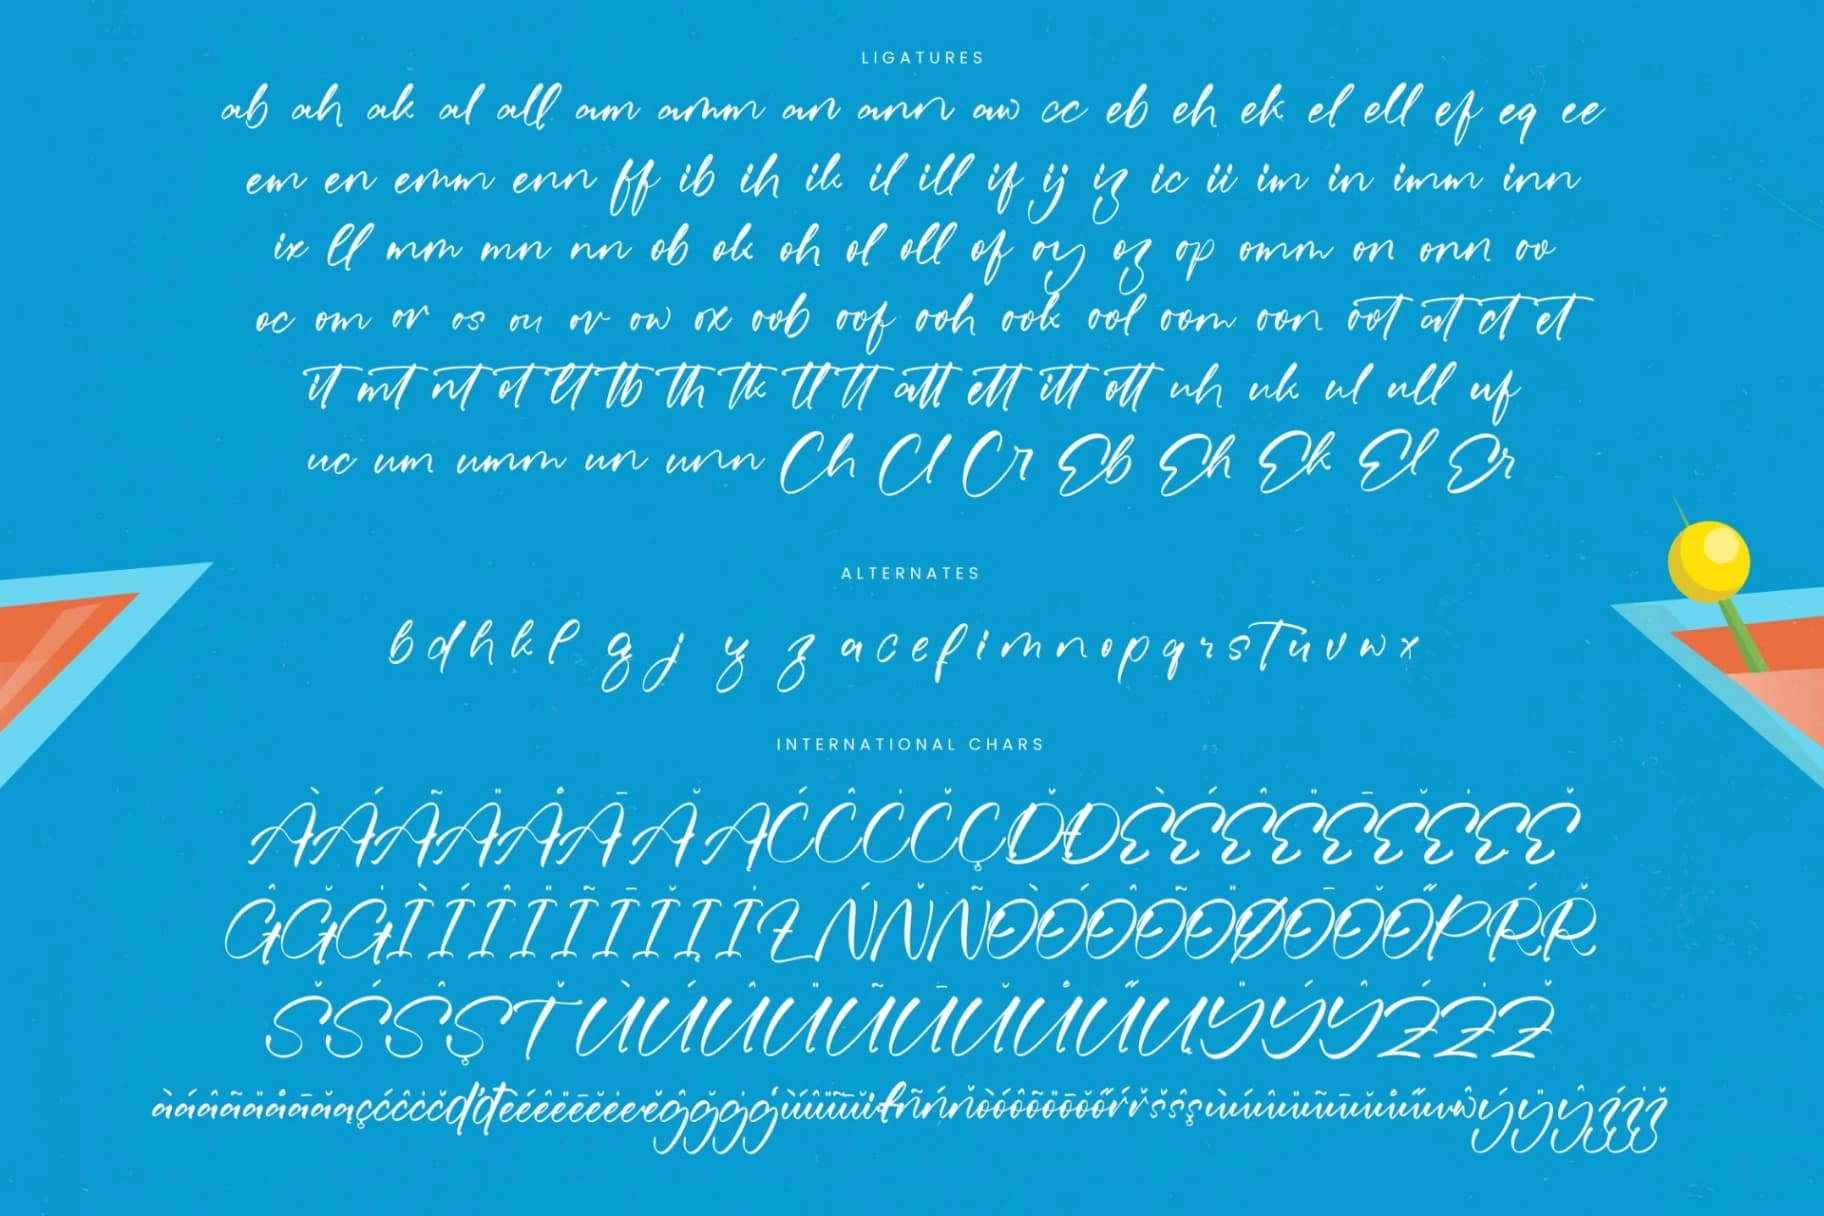 LIGATURES
ab ah ak al all am amm an ann aw cc eb eh ek el ell ef eq ee
em en emm enn ff ib ih ik il ill if ij iz ic ii im in imm inn
ix ll mm mn nn ob ok oh ol oll of oy oz op omm on onn ov
oc om or os ou ov ow ox oob oof ooh ook ool oom oon oot at ct et
it mt nt ot lt tb th tk tl tt att ett itt ott uh uk ul ull uf
uc um umm un unn Ch Cl Cr Eb Eh Ek El Er
ALTERNATES
b d h k l g j y z a c e f i m n o p q r s t u v w x
INTERNATIONAL CHARS
ÀÁÃÄÅĀĂĄĆĈĊČÇĎĐÈÉÊËĒĔĖĘĚ
ĜĞĠÌÍÎÏĨĪĬĮİŁŃŇÑÒÓÔÕÖØŌŎŐŔŘ
ŠŚŜŞŤÙÚÛÜŨŪŬŮŰŲŸÝŶŹŻŽ